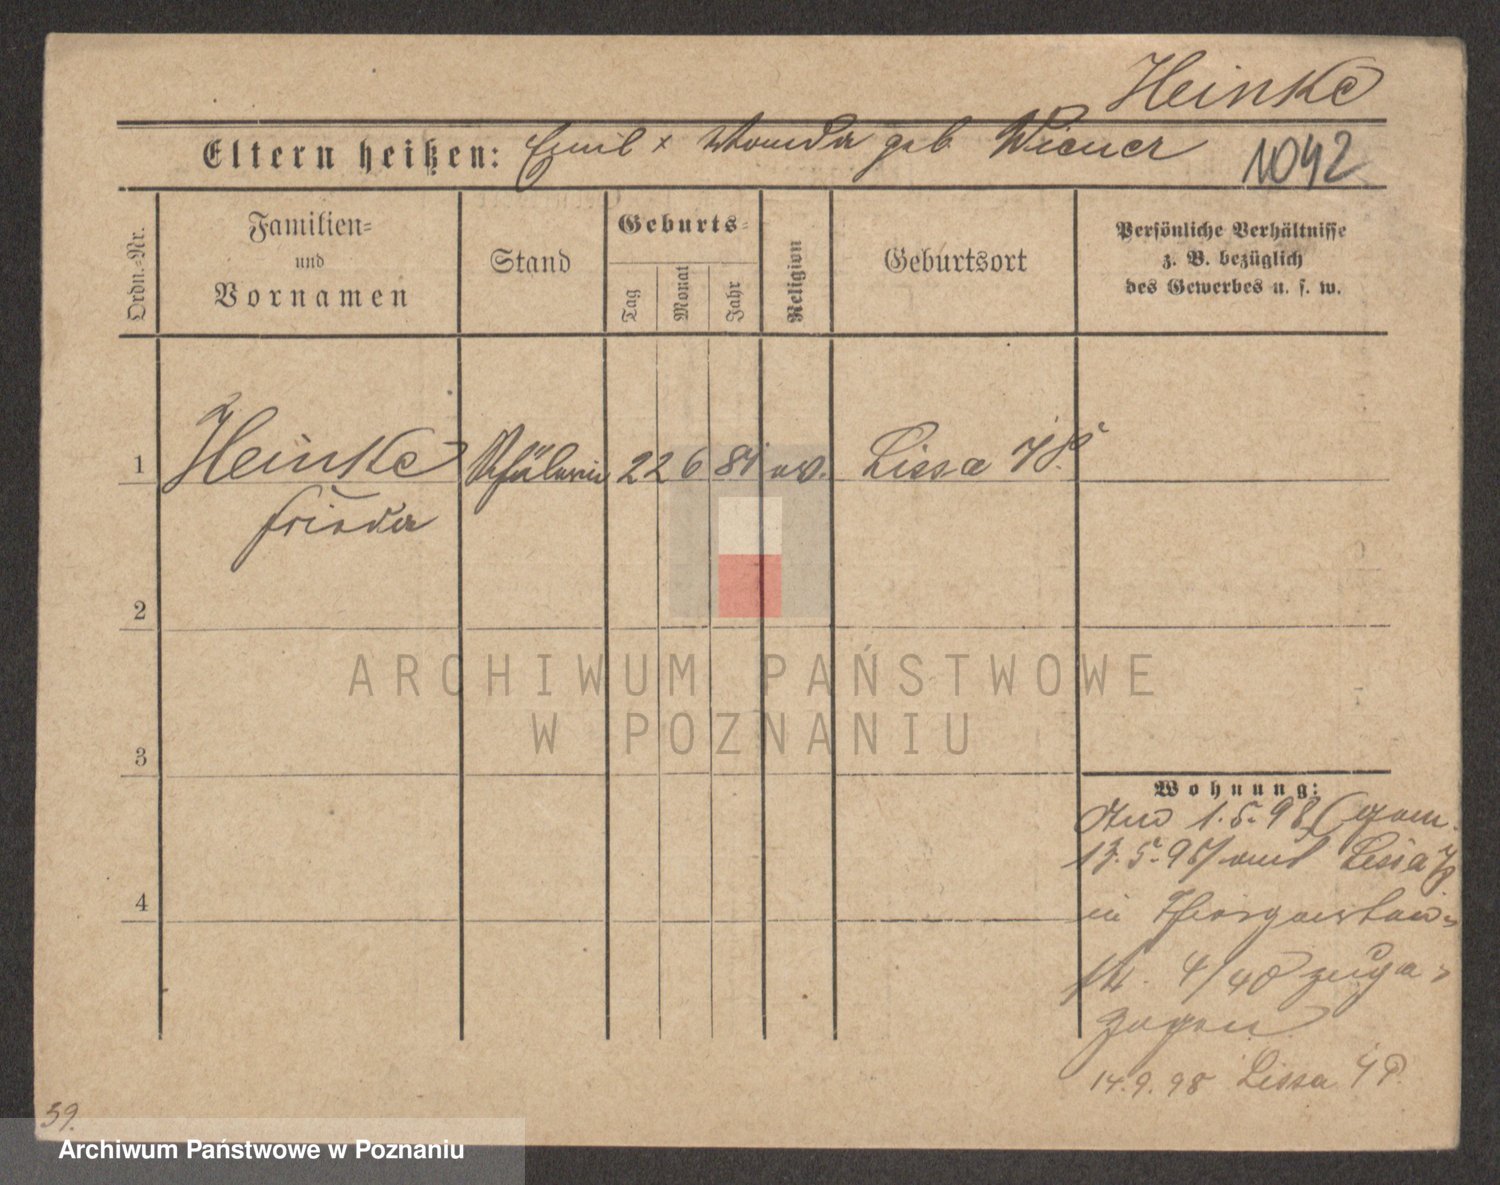 Heinke
Eltern heißen: Emil x Wanda geb. Wiener
1042
Ordn.-Nr.
Familien-
und
Vornamen
Stand
Geburts-
Tag
Monat
Jahr
Religion
Geburtsort
Persönliche Verhältnisse
z. B. bezüglich
des Gewerbes u. s. w.
1 Heinke Schülerin 22 6 84 ev. Lissa i/P.
Frieda
2
3
4
ARCHIWUM PAŃSTWOWE
W POZNANIU
Wohnung:
1.5.98 (gem.
13.5.98) aus Lissa i/P
in
4/40 zuge-
zogen
14.9.98 Lissa i P.
59.
Archiwum Państwowe w Poznaniu